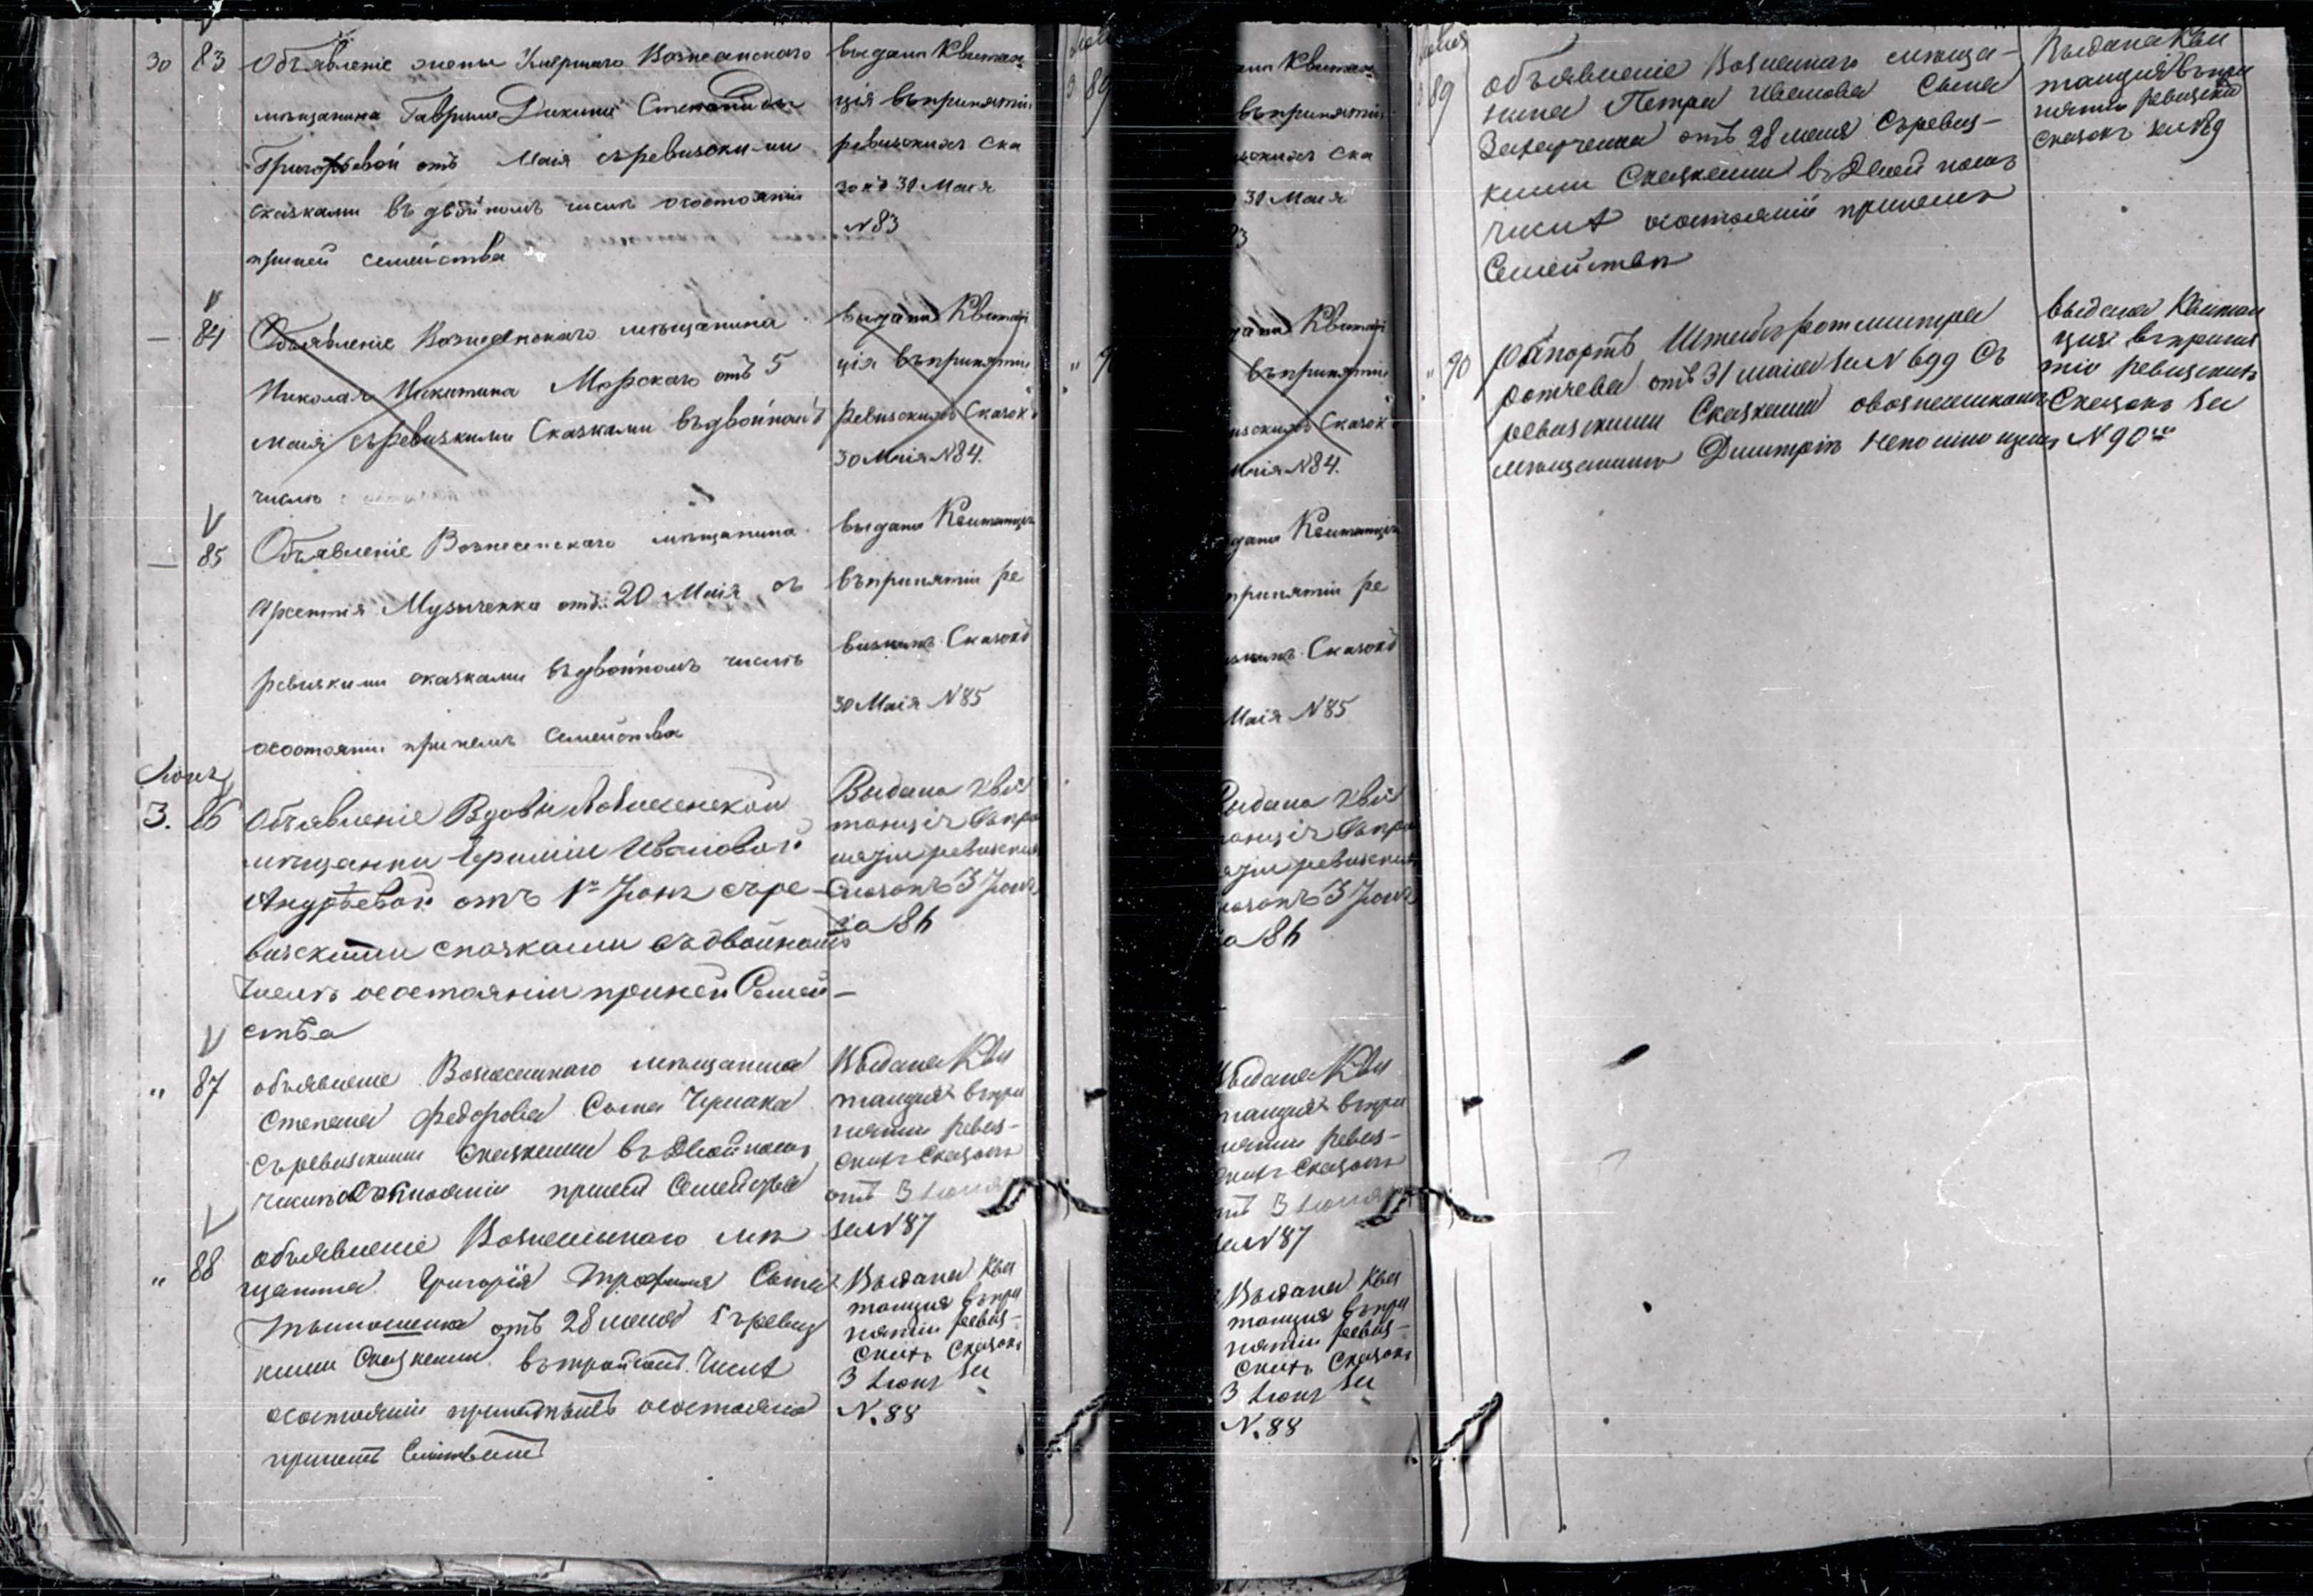 30 83 Объявленіе жены Умершаго Вознесенскаго
мѣщанина Гаврила Дикина Степаниды
Григорьевой отъ Маія съ ревизскими
сказками въ двойномъ числѣ о состояніи
при ней семейства
выдана Квитан
ція въ принятіи
ревизскихъ ска
зокъ 30 Маія
№83
— 84 Объявленіе Вознесенскаго мѣщанина
Николая Никитина Морскаго отъ 5
маія съ ревизкими Сказками въ двойномъ
числѣ
выдана Квитан
ція въ принятіи
ревизскихъ Сказокъ
30 Маія №84.
— 85 Объявленіе Вознесенскаго мѣщанина
Арсентія Музыченка отъ 20 Маія съ
ревизкими сказками въ двойномъ числѣ
о состояніи при немъ Семейства
выдана Квитанція
въ принятіи ре
визкихъ Сказокъ
30 Маія №85
Іюнь
3. 86 Объявленіе Вдовы Вознесенской
мѣщанки Ивановой
Андреевой отъ 1го Іюня съ ре-
визскими сказками въ двойномъ
числѣ о состояніи при ней Семей-
ства
Выдана кви
танція въ при
нятіи ревизскихъ
Сказокъ 3 Іюня
за 86
" 87 объявленіе Вознесенскаго мѣщанина
Степана Федорова Сына Чумака
съ ревизскими Сказками въ Двойномъ
числѣ о Состояніи при немъ Семейства
Выдана Кви
танция въ при
нятіи ревиз-
скихъ Сказокъ
отъ 3 Іюня
за №87
" 88 объявленіе Вознесенскаго мѣ
щанина Григорія Трофима Сына
отъ 28 маия съ ревиз
кими Сказками въ Числѣ
о состояніи о состояніи
Выдана Кви
танция въ при
нятіи ревиз-
скихъ Сказокъ
3 Іюня за
№.88
89 объявленіе Вознесенскаго мѣща-
нина Петра Иванова Сына
отъ 28 маия Съ ревиз-
кими Сказками въ Двойномъ
числѣ о состояніи при немъ
Семейства
Выдана Кви
танция въ при
нятіи ревизскихъ
Сказокъ за №89
" 90 рапортъ Штабъ ротмистра
Ротчева отъ 31 маія за №699 Съ
ревизскими Сказками о вознесенскомъ
мѣщанинѣ Дмитріѣ Непомнющемъ
выдана Квитан
ция въ приня
тіи ревизскихъ
Сказокъ за
№90